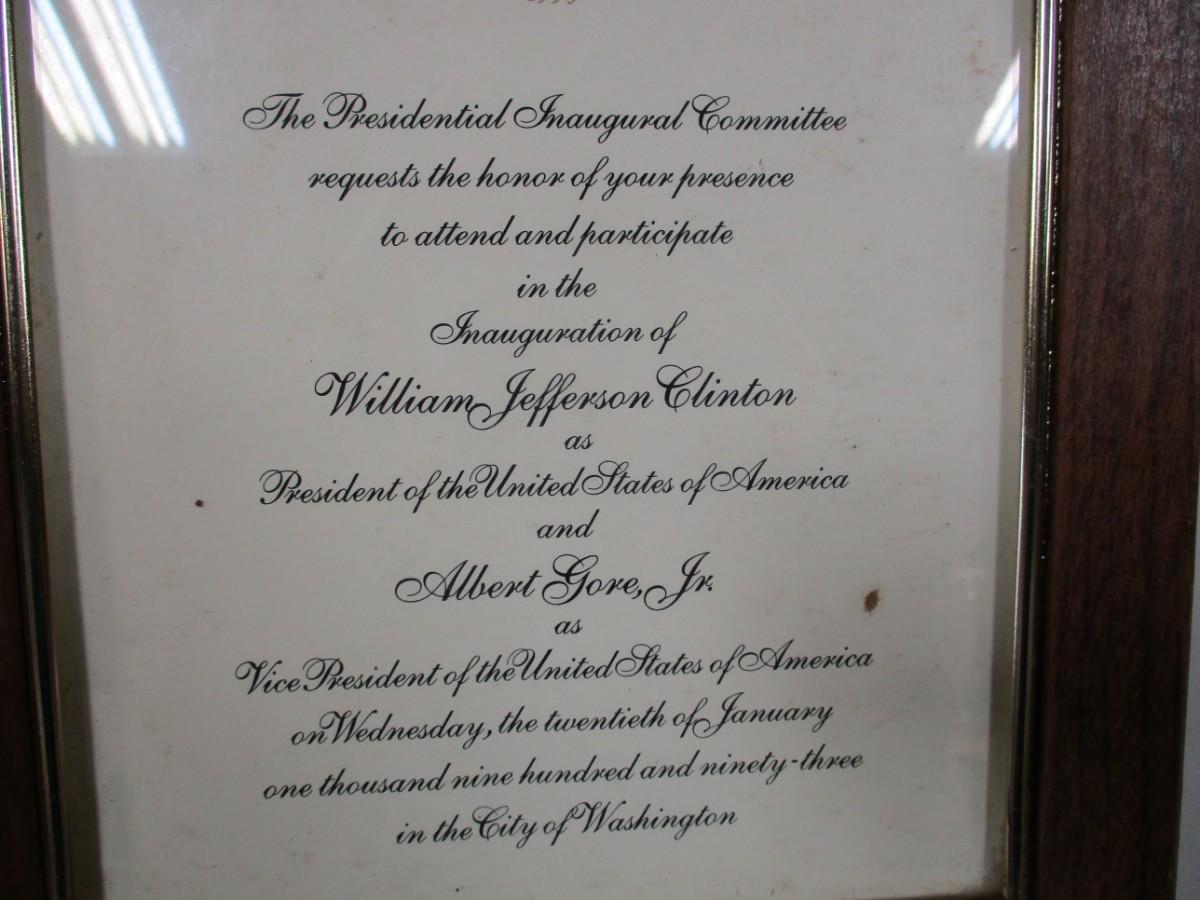 The Presidential Inaugural Committee
requests the honor of your presence
to attend and participate
in the
Inauguration of
William Jefferson Clinton
as
President of the United States of America
and
Albert Gore, Jr.
as
Vice President of the United States of America
on Wednesday, the twentieth of January
one thousand nine hundred and ninety-three
in the City of Washington